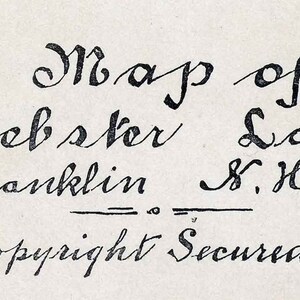 Map of
ebster La
anklin N. H
opyright Secured